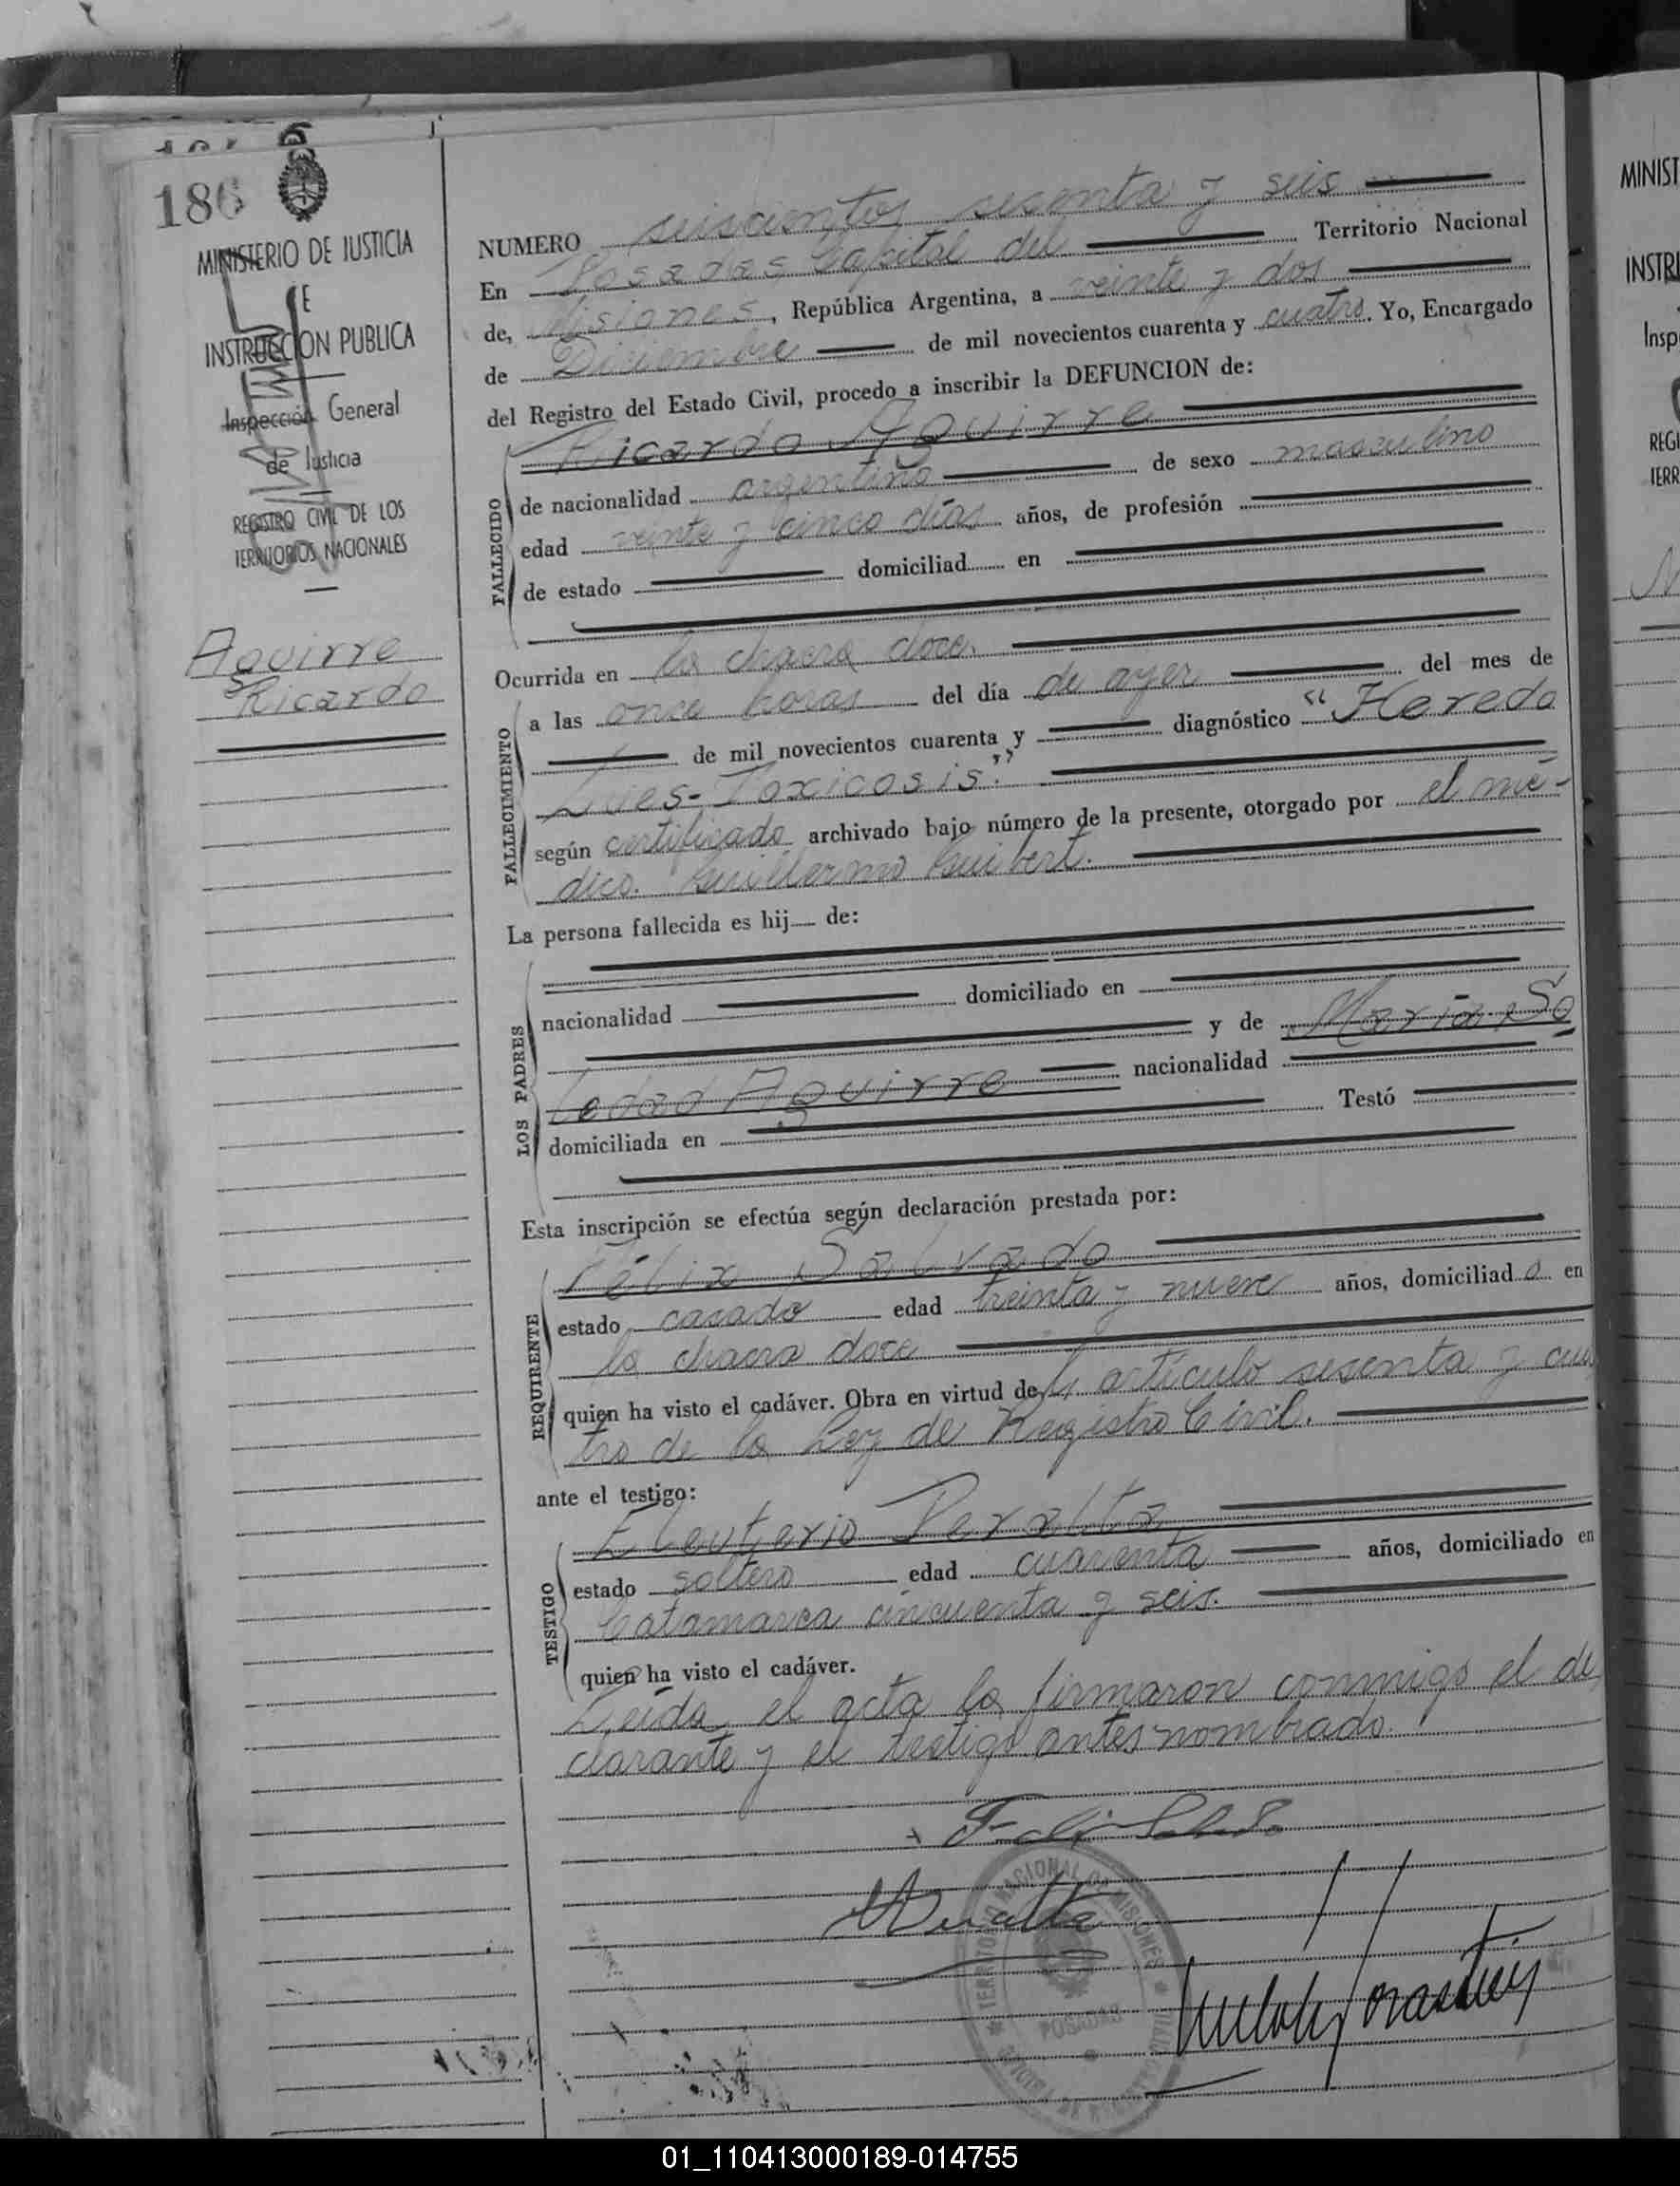 186
MINISTERIO DE JUSTICIA
E
INSTRUCCION PUBLICA
Inspección General
de Justicia
REGISTRO CIVIL DE LOS
TERRITORIOS NACIONALES
Aguirre
Ricardo
NUMERO seiscientos sesenta y seis
En Posadas Capital del Territorio Nacional
de, Misiones, República Argentina, a veinte y dos
de Diciembre de mil novecientos cuarenta y cuatro. Yo, Encargado
del Registro del Estado Civil, procedo a inscribir la DEFUNCION de:
Ricardo Aguirre
FALLECIDO
de nacionalidad argentino de sexo masculino
edad veinte y cinco días años, de profesión
de estado domiciliad en
Ocurrida en la chacra doce.
FALLECIMIENTO
a las once horas del día de ayer del mes de
de mil novecientos cuarenta y diagnóstico "Heredo
Lues-Toxicosis".
según certificado archivado bajo número de la presente, otorgado por el mé-
dico. Guillermo Guibert.
La persona fallecida es hij de:
LOS PADRES
nacionalidad domiciliado en
y de María So
ledad Aguirre nacionalidad
domiciliada en Testó
Esta inscripción se efectúa según declaración prestada por:
Félix Salvado
REQUIRENTE
estado casado edad treinta y nueve años, domiciliado en
la chacra doce
quien ha visto el cadáver. Obra en virtud del artículo sesenta y cua
tro de la Ley de Registro Civil.
ante el testigo:
Eleuterio Peralta
TESTIGO
estado soltero edad cuarenta años, domiciliado en
Catamarca cincuenta y seis.
quien ha visto el cadáver.
Leída el acta la firmaron conmigo el de
clarante y el testigo antes nombrado.
TERRITORIO NACIONAL DE MISIONES
POSADAS
MINIST
INSTRU
Insp
REGI
TERR
01_110413000189-014755